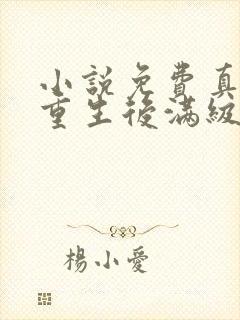 小說免費真
重生後滿級
楊小愛